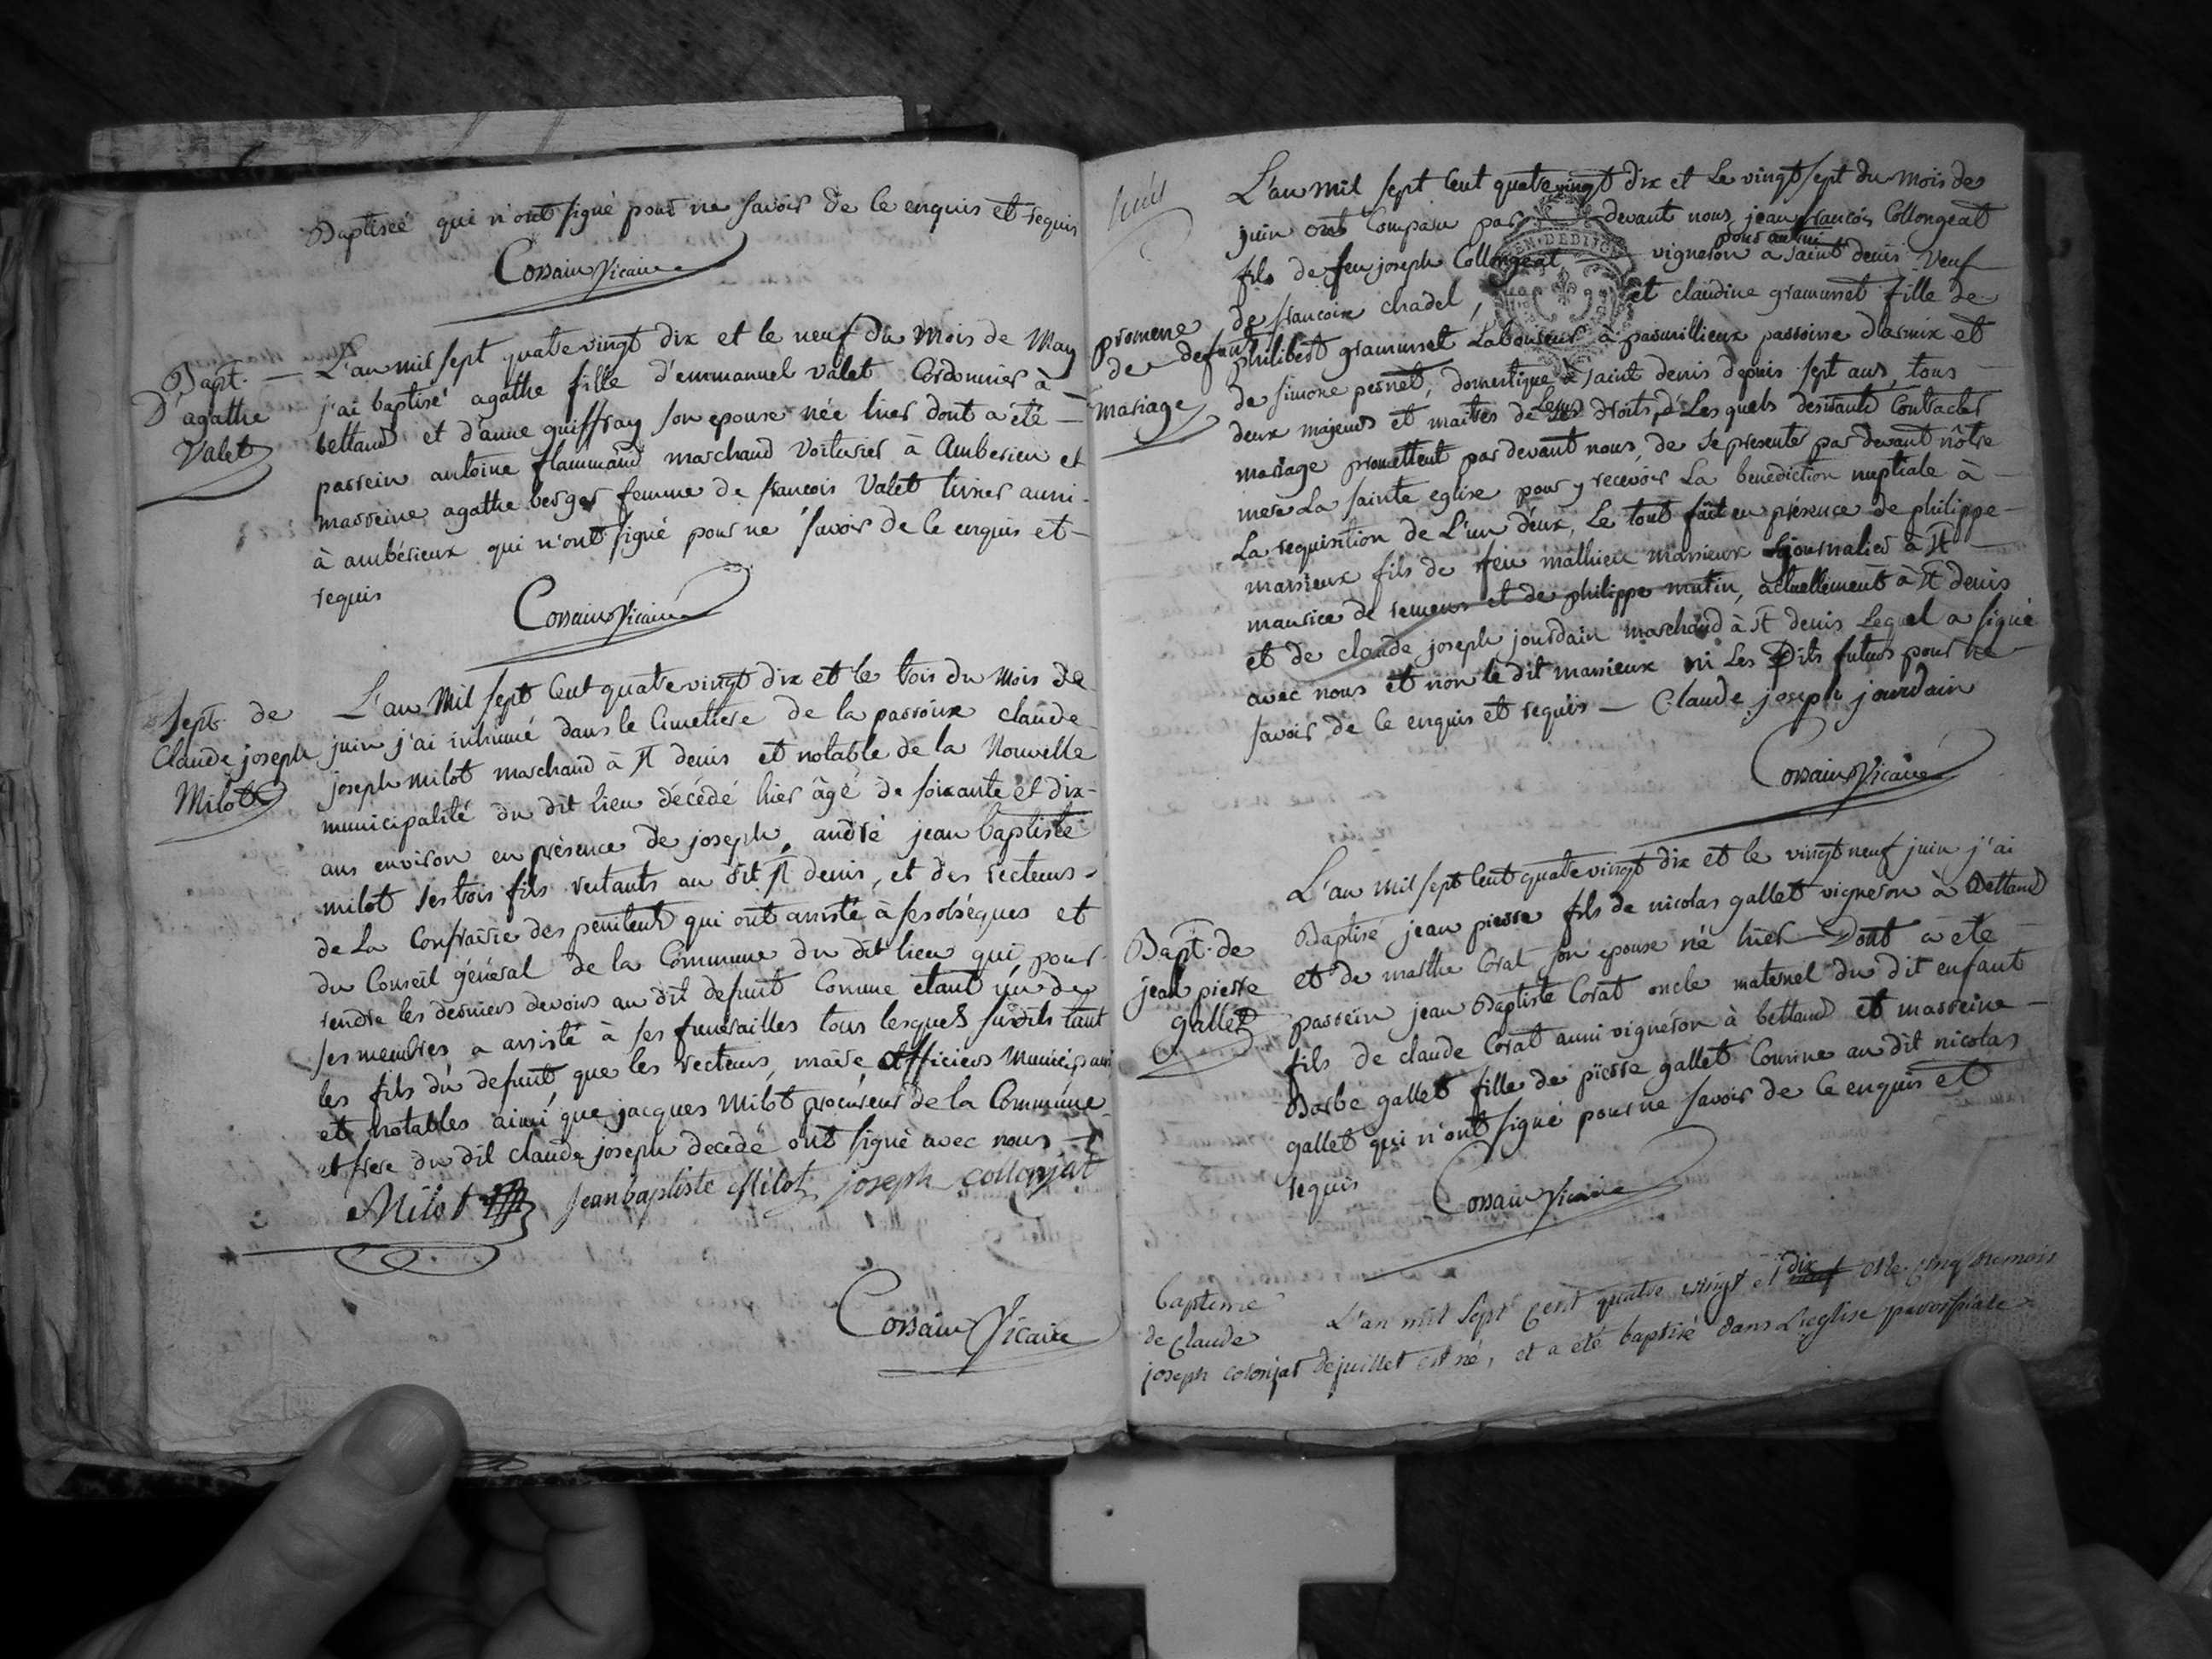 Baptiseé qui n'ont signé pour ne savoir de ce enquis et requis
Cossain Vicaire
Bapt.
D'agathe
Valet
L'an mil sept quatre vingt dix et le neuf du mois de May
j'ai baptisé agathe fille d'emmanuel Valet Cordonnier à
bettand et d'anne guiffray son epouse née hier dont a été
parrein antoine flammand marchand voiturier à Amberieu et
marreine agathe berger femme de francois Valet aussi
à ambérieux qui n'ont signé pour ne savoir de ce enquis et
requis
Cossain Vicaire
Sept. de
Claude joseph
Milot
L'an Mil sept Cent quatre vingt dix et le trois du mois de
juin j'ai inhumé dans le Cimetiere de la parroisse claude
joseph milot marchand à St denis et notable de la Nouvelle
municipalité du dit lieu décédé hier âgé de soixante et dix
ans environ en présence de joseph, andré jean baptiste
milot ses trois fils restants au dit St denis, et des recteurs
de La Confrairie des penitents qui ont assisté à ses obséques et
du Conseil général de la Commune du dit lieu qui pour
rendre les derniers devoirs au dit defunt Comme etant un de
ses membres a assisté à ses funerailles tous lesquels susdits tant
les fils du defunt, que les recteurs, maire officiers Municipaux
et notables ainsi que jacques Milot procureur de la Commune
et frere du dit claude joseph decedé ont signé avec nous
Milot jean baptiste Milot joseph collonjat
Cossain Vicaire
promesse
de
mariage
L'an mil sept Cent quatre vingt dix et Le vingt sept du mois de
juin ont Comparu par devant nous jean francois Collongeat
pour aussi
fils de feu joseph Collongeat vigneron a saint denis Veuf
de francoise chadel, et claudine gramusset fille de
defunt philibert gramusset Laboureur à parmillieux parroisse d'arnix et
de simone pernet, domestique à saint denis depuis sept ans, tous
deux majeurs et maitres de Leurs droits, Lesquels desirants Contracter
mariage promettent par devant nous, de se presenter par devant nôtre
mere La sainte eglise pour y recevoir La benediction nuptiale à
La requisition de L'un d'eux, Le tout fait en présence de philippe
massieux fils de feu mathieu massieux journalier à St
maurice de remens et de philippe mutin, actuellement à St denis
et de claude joseph jourdain marchand à St denis Lequel a signé
avec nous et non le dit massieux ni Les Dits futurs pour ne
savoir de ce enquis et requis — Claude joseph jourdain
Cossain Vicaire
Bapt. de
jean pierre
gallet
L'an Mil sept Cent quatre vingt dix et le vingt neuf juin j'ai
Baptisé jean pierre fils de nicolas gallet vigneron à Bettand
et de marthe Corat son epouse né hier Dont a été
parrein jean Baptiste Corat oncle maternel du dit enfant
fils de claude Corat aussi vigneron à bettand et marreine
Barbe gallet fille de pierre gallet Cousine au dit nicolas
gallet qui n'ont signé pour ne savoir de ce enquis et
requis
Cossain Vicaire
bapteme
de Claude
joseph colonjat
L'an mil sept cent quatre vingt et dix et le cinq du mois
de juillet est né, et a été baptisé dans L'eglise parroissiale